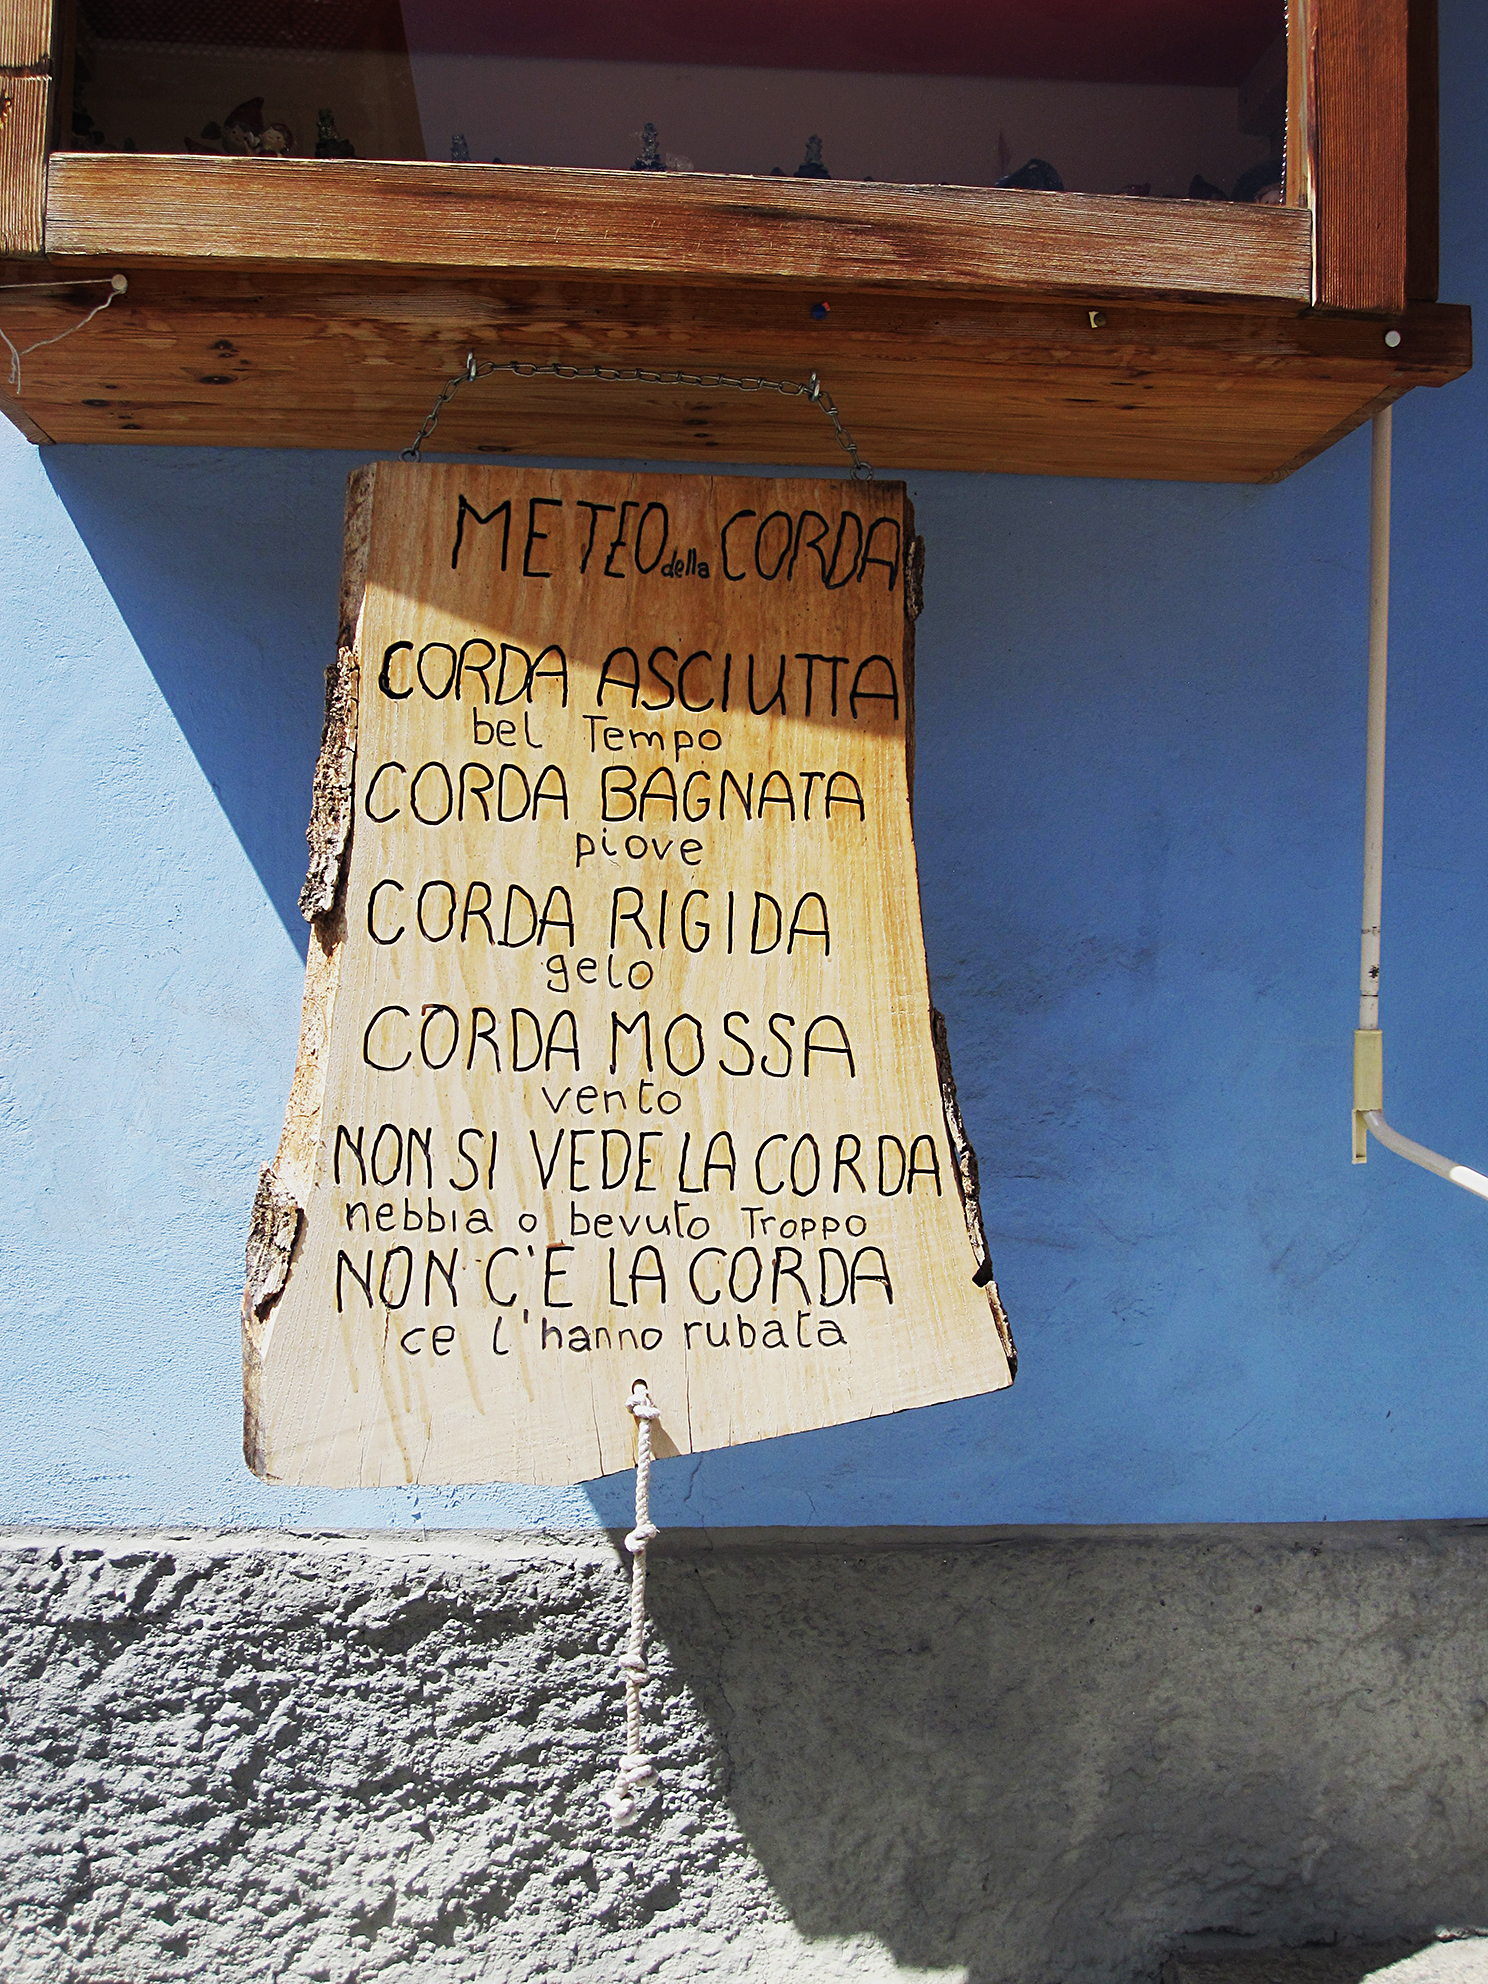 METEO della CORDA
CORDA ASCIUTTA
bel Tempo
CORDA BAGNATA
piove
CORDA RIGIDA
gelo
CORDA MOSSA
vento
NON SI VEDE LA CORDA
nebbia o bevuto Troppo
NON C'E LA CORDA
ce l'hanno rubata